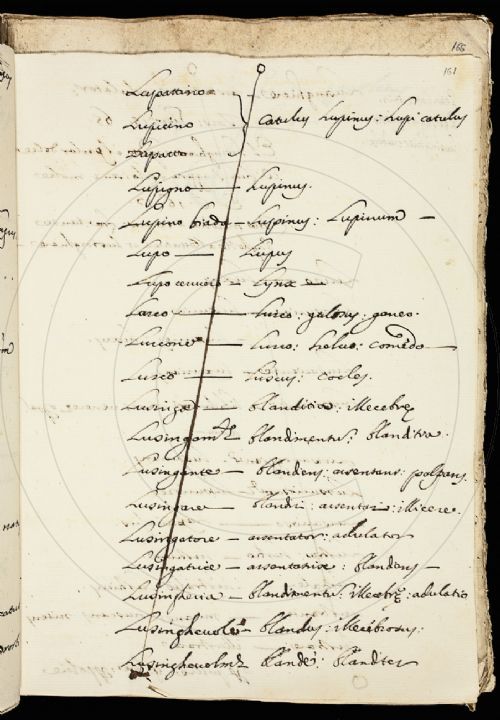 166
161
Lupattino
Lupicino } Catulus Lupinus: Lupi catulus
Lupacto
Lupigno — Lupinus.
Lupino biada — Lupinus: Lupinum —
Lupo — Lupus
Lupo cerviero — Lynx —
Lurco — Lurco: gulosus. ganeo.
Lurcone — Lurco: heluo: comedo —
Lusco — Luscus: cocles.
Lusinga — blanditia: illecebre
Lusingamto blandimentu: blanditia.
Lusingante — blandens: assentans: palpans.
Lusingare — blandiri: assentari: illicere.
Lusingatore — assentator: adulator
Lusingatrice — assentatrix: blandens —
Lusingheria — blandimentu: illecebre: adulatio
Lusinghevole blandus: illecebrosus:
Lusinghevolmte blande: blanditer